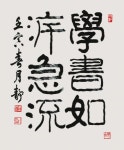 學書如
泝急流
壬寅春月